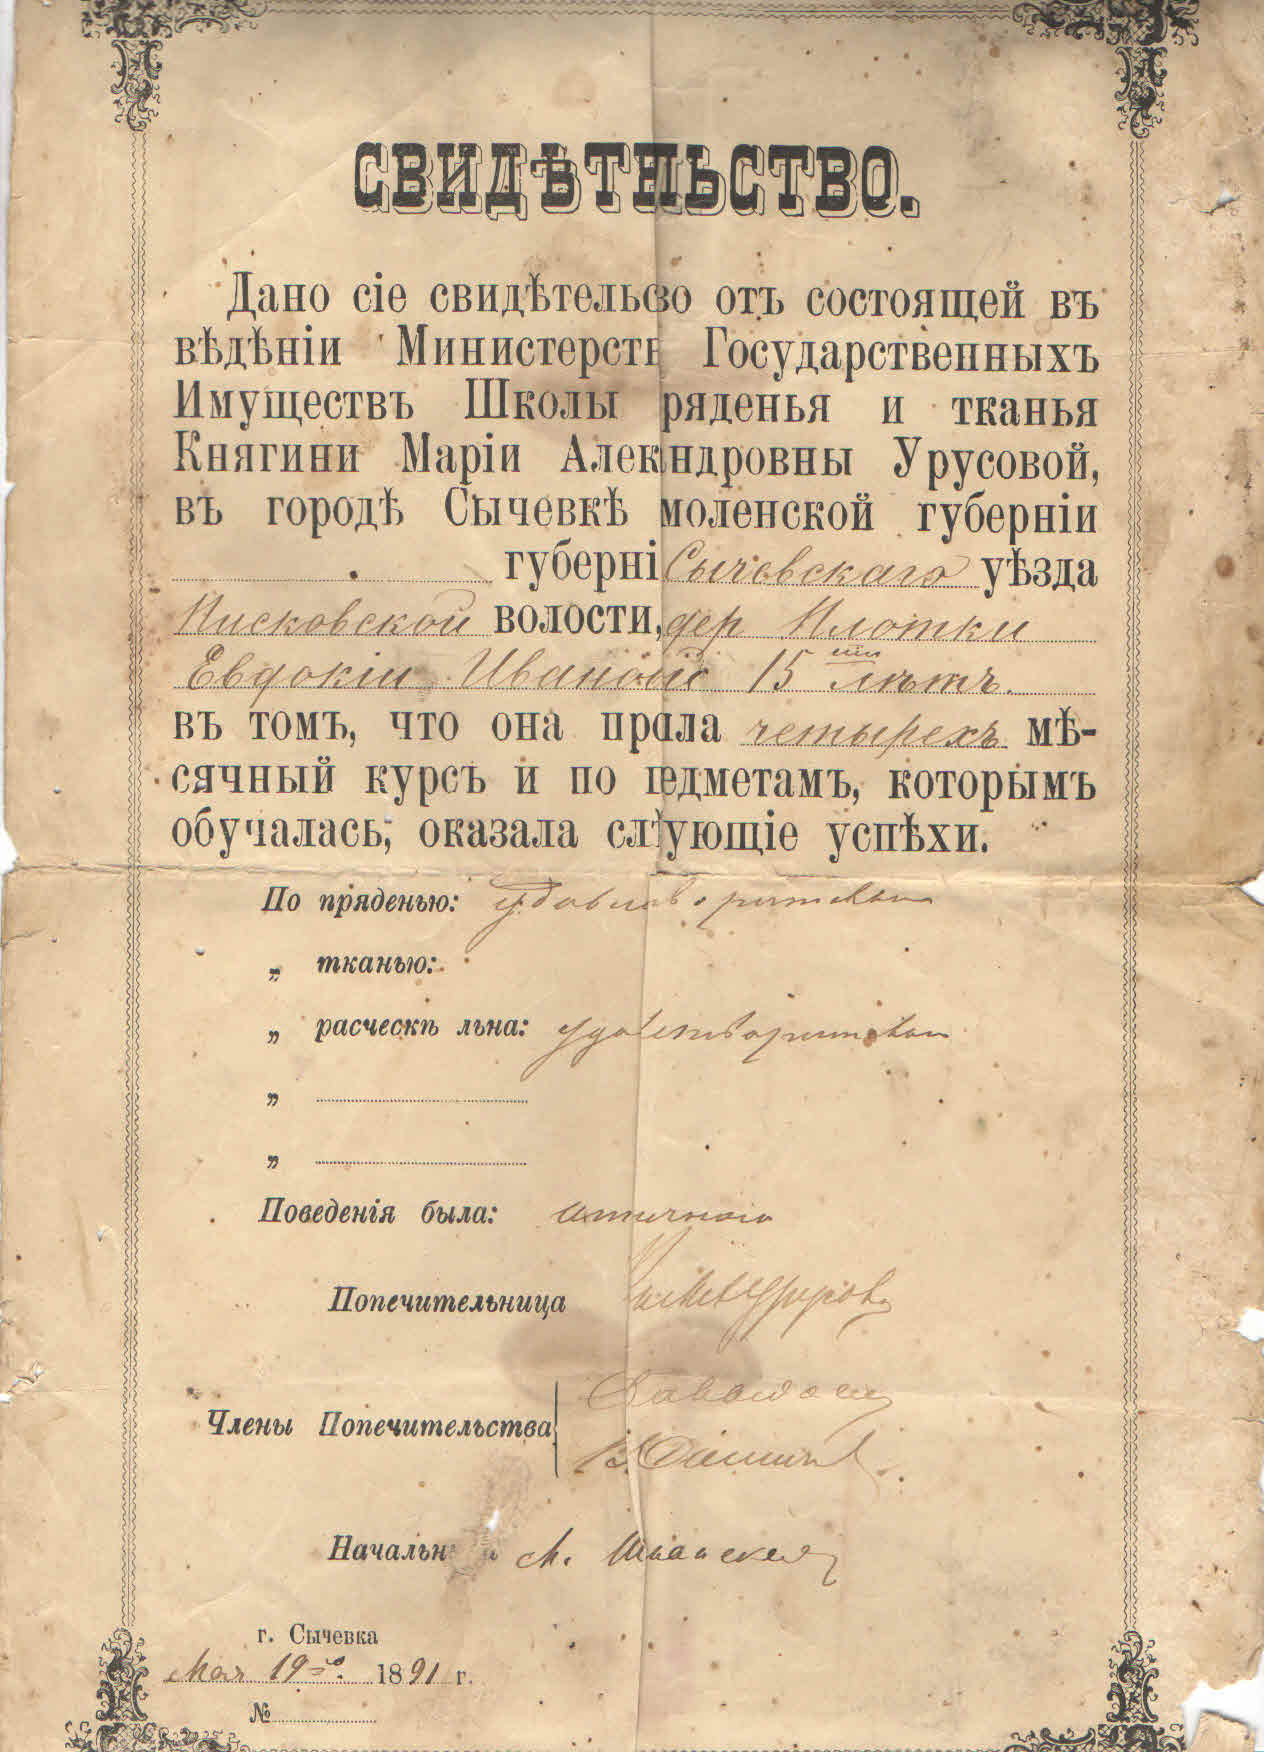 СВИДѢТЕЛЬСТВО.
Дано сіе свидѣтельство отъ состоящей въ
вѣдѣніи Министерств Государственныхъ
Имуществъ Школы ряденья и тканья
Княгини Маріи Александровны Урусовой,
въ городѣ Сычевкѣ моленской губерніи
губерні Сычевскаго уѣзда
волости, дер Плотки
Евдокіи 15 лѣтъ.
въ томъ, что она прала четырехъ мѣ-
сячный курсъ и по едметамъ, которымъ
обучалась, оказала слѣующіе успѣхи.
По пряденью: удовлетворительно
„ тканью:
„ расческѣ льна: удовлетворительно
„
„
Поведенія была: отличнаго
Попечительница
Члены Попечительства
Начальн а М.
г. Сычевка
Мая 19го 1891 г.
№